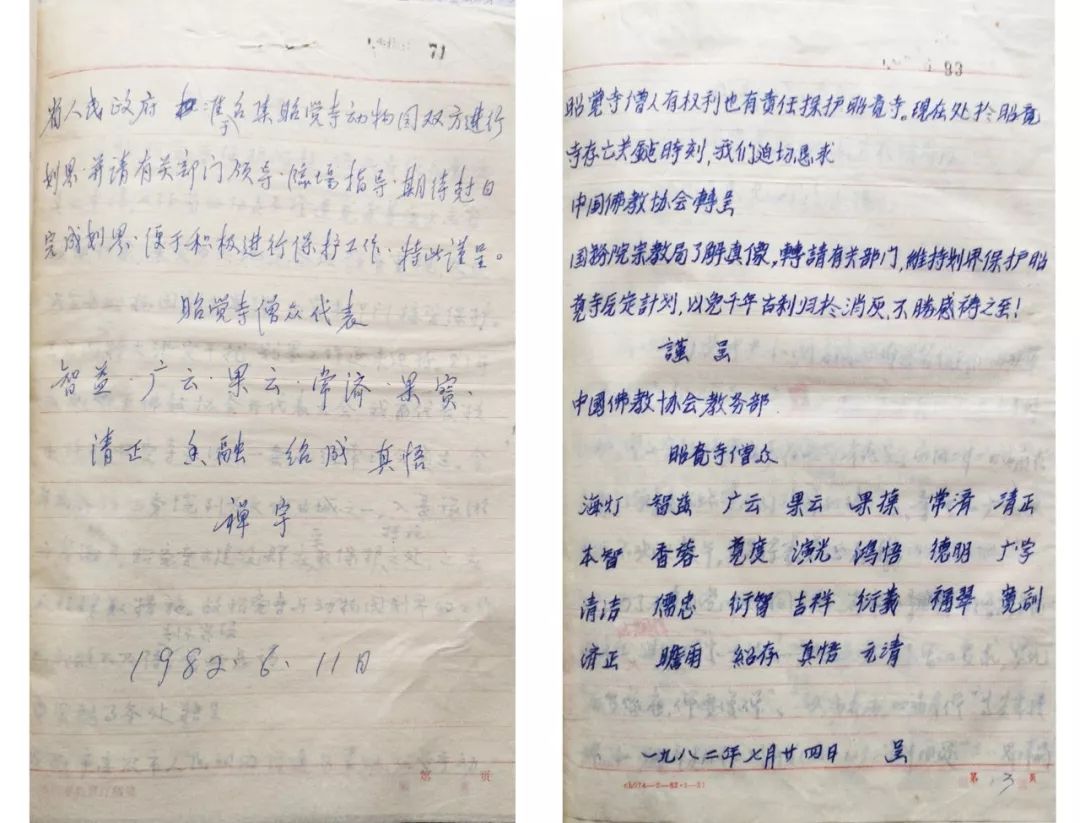 71
省人民政府 准于召集昭觉寺动物园双方进行
划界·并请有关部门领导·临场指导·期待尅日
完成划界·便于积极进行保护工作·特此谨呈。
昭觉寺僧众代表
智益·广云·果云·常济·果实·
清正 融 绍成 真悟
禅宇
1982 6. 11日
第 页
93
昭覺寺僧人有权利也有责任保护昭覺寺。现在处於昭覺
寺存亡关鍵時刻,我们迫切恳求
中国佛教协会轉呈
国務院宗教局了解真像,轉請有关部门,維持划界保护昭
覺寺原定計划,以免千年古刹归於消灰,不勝感禱之至!
謹 呈
中國佛教协会教务部
昭覺寺僧众
海灯 智益 广云 果云 果操 常濟 清正
本智 香蓉 寬度 演光 鸿悟 德明 广学
清洁 儒忠 衍智 吉祥 衍義 福翠 寬訓
济正 瞻雨 紹存 真悟 元清
一九八二年七月廿四日 呈
第 3 頁